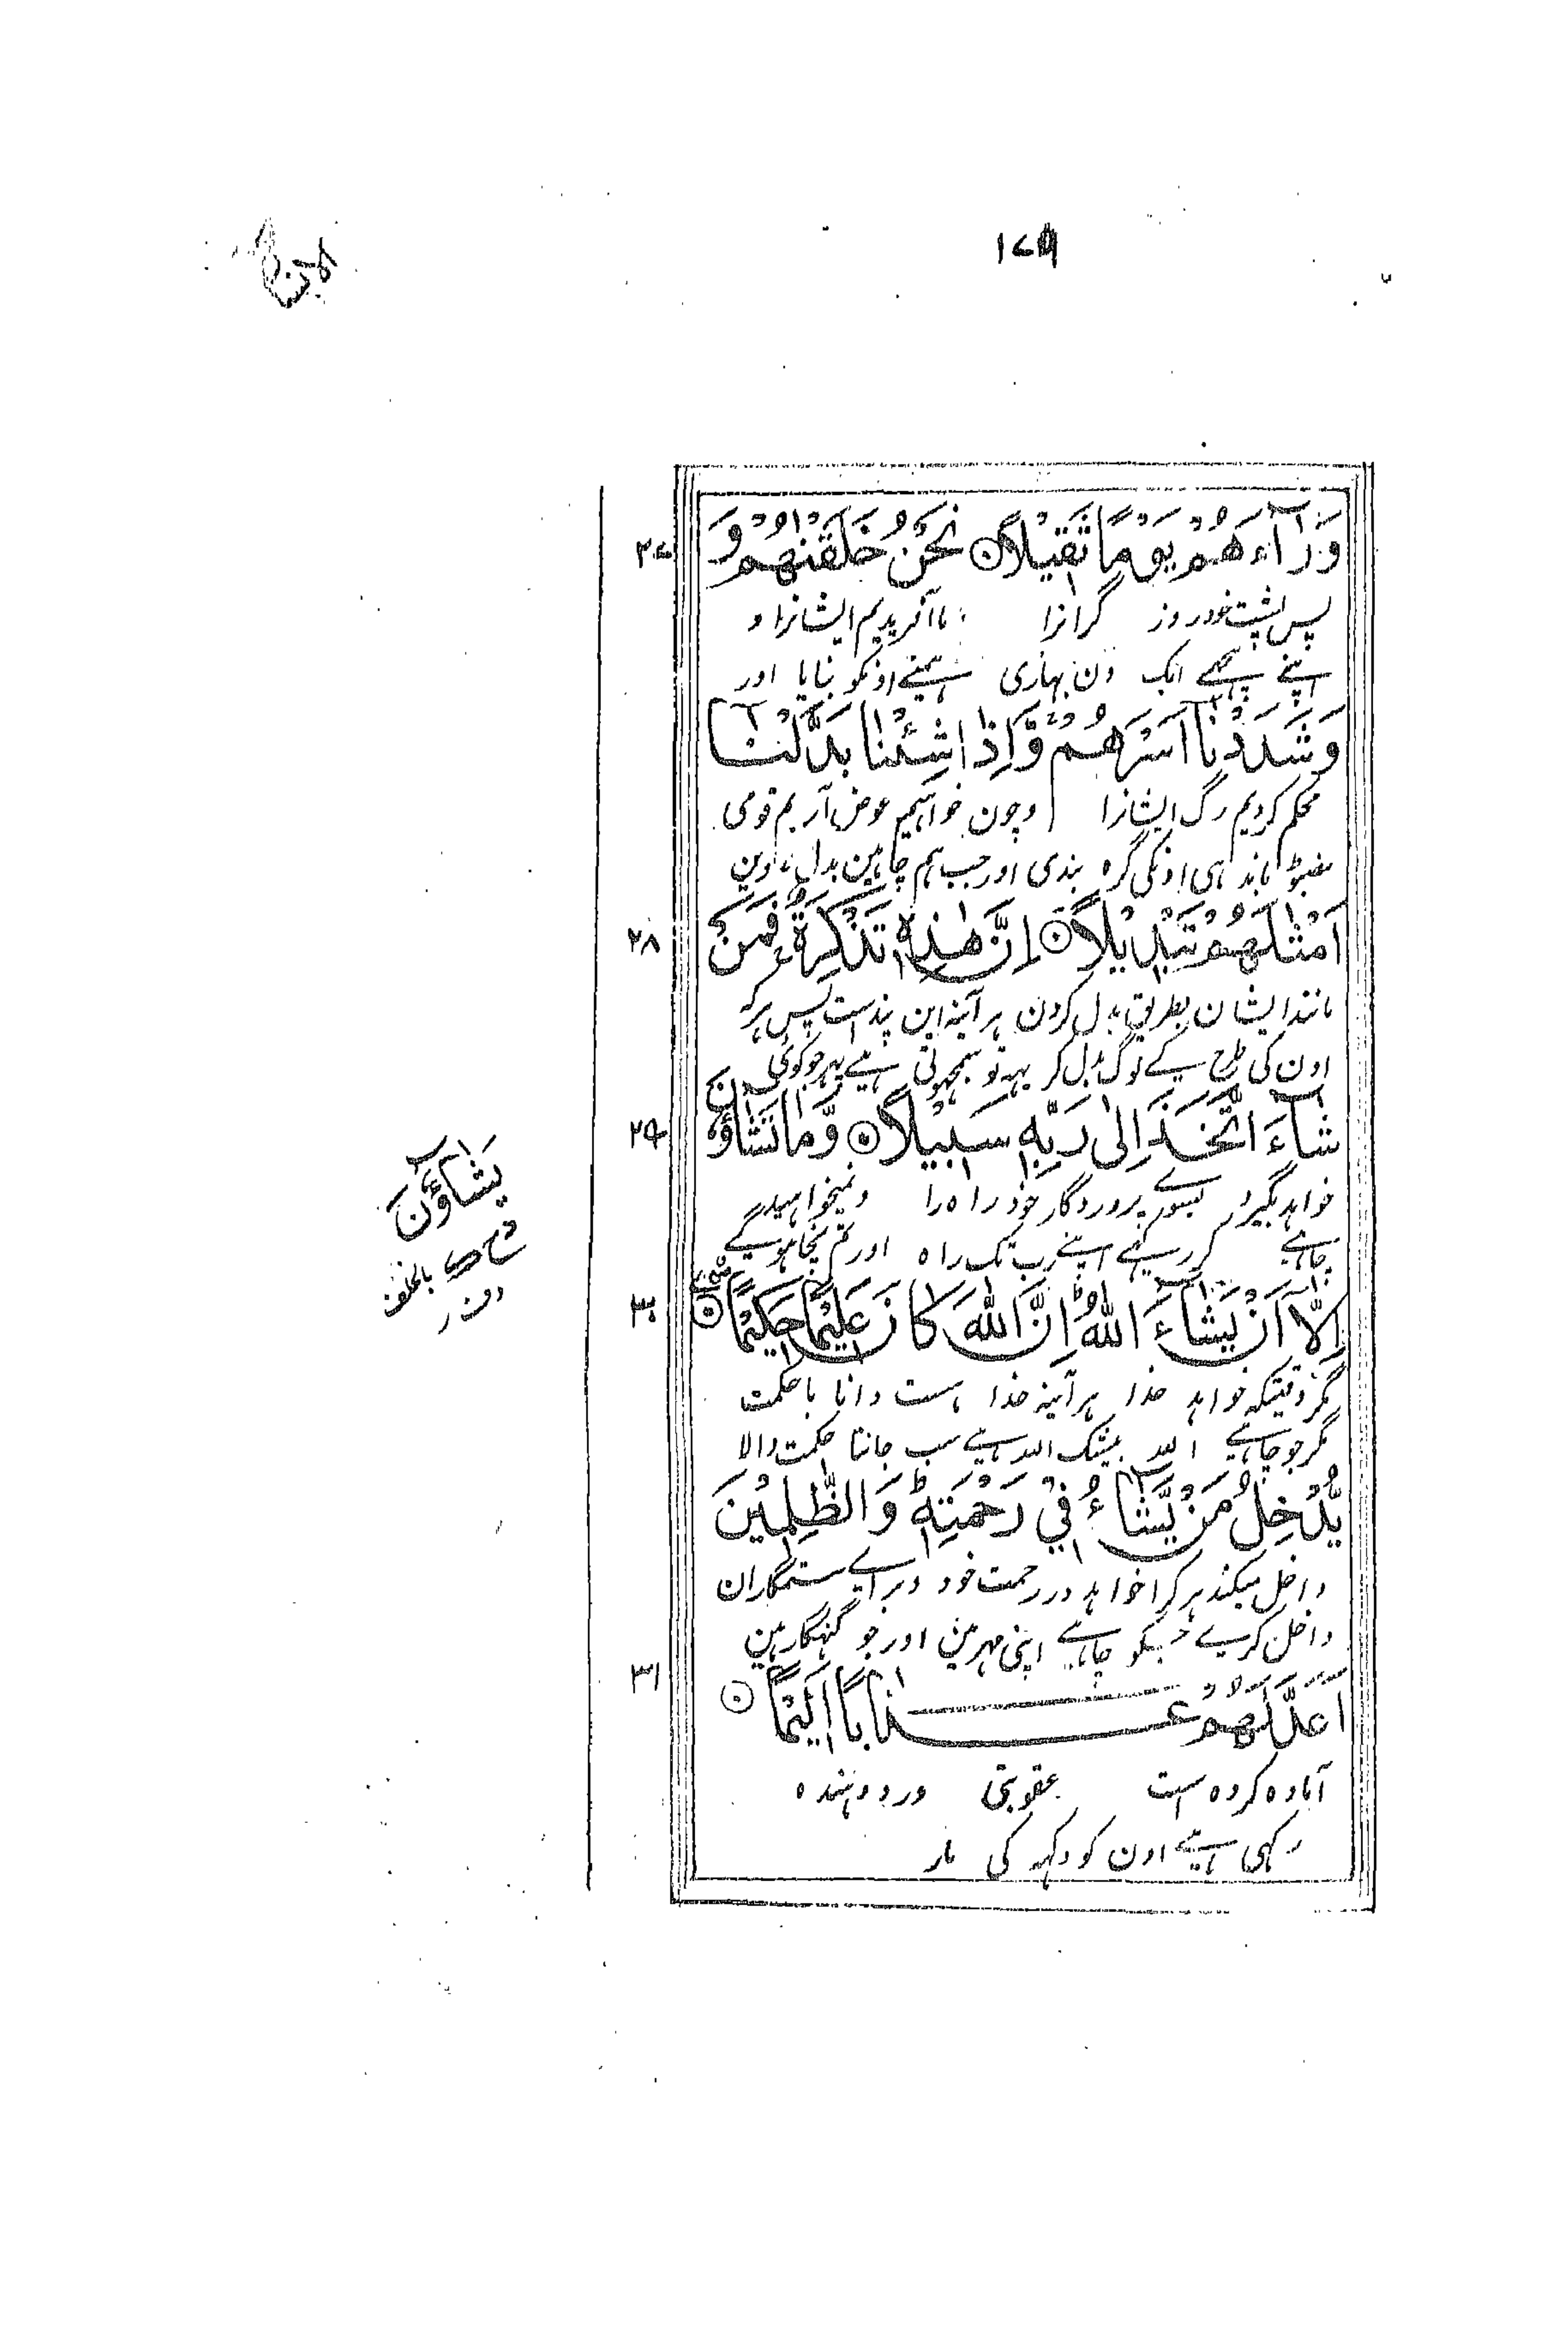 ۱۷۹
وَرَآءَهُمْ يَوْمًا ثَقِيْلًا ۞ نَحْنُ خَلَقْنٰهُمْ وَ
۲۷
پس پشت خود روز گرانرا ما آفریدیم ایشانرا و
اپنے پیچھے ایک دن بھاری ہمنے اونکو بنایا اور
وَشَدَدْنَآ اَسْرَهُمْ ۚ وَاِذَا شِئْنَا بَدَّلْنَآ
محکم کردیم رگ ایشانرا و چون خواہیم عوض آریم قومی
باندہی اونکی گرہ بندی اور جب ہم چاہین بدل لاوین
اَمْثَالَهُمْ تَبْدِيْلًا ۞ اِنَّ هٰذِهٖ تَذْكِرَةٌ ۚ فَمَنْ
۲۸
مانند ایشان بطریق بدل کردن ہر آئینہ این پندست پس ہر کہ
اون کی طرح کے لوگ بدل کر یہہ تو سمجہوتی ہے پہر جو کوئی
شَآءَ اتَّخَذَ اِلٰى رَبِّهٖ سَبِيْلًا ۞ وَمَا تَشَآؤُنَ
۲۹
خواہد بگیرد بسوے پروردگار خود راہ را و نمیخواہید
چاہے کر رکہے اپنے رب تک راہ اور تم نچاہوگے
يَشَآؤُنَ
بالخلف
اِلَّآ اَنْ يَّشَآءَ اللّٰهُ ؕ اِنَّ اللّٰهَ كَانَ عَلِيْمًا حَكِيْمًا ۞
۳۰
مگر وقتیکہ خواہد خدا ہر آئینہ خدا ہست دانا با حکمت
مگر جو چاہے اللہ بیشک اللہ ہے سب جانتا حکمت والا
يُّدْخِلُ مَنْ يَّشَآءُ فِيْ رَحْمَتِهٖ ؕ وَالظّٰلِمِيْنَ
داخل میکند ہر کرا خواہد در رحمت خود و براے ستمگاران
داخل کرے جسکو چاہے اپنی مہر مین اور جو گنہگار ہین
اَعَدَّ لَهُمْ عَذَابًا اَلِيْمًا ۞
۳۱
آمادہ کردہ است عقوبتی درد دہندہ
رکہی ہے اون کو دکہہ کی مار